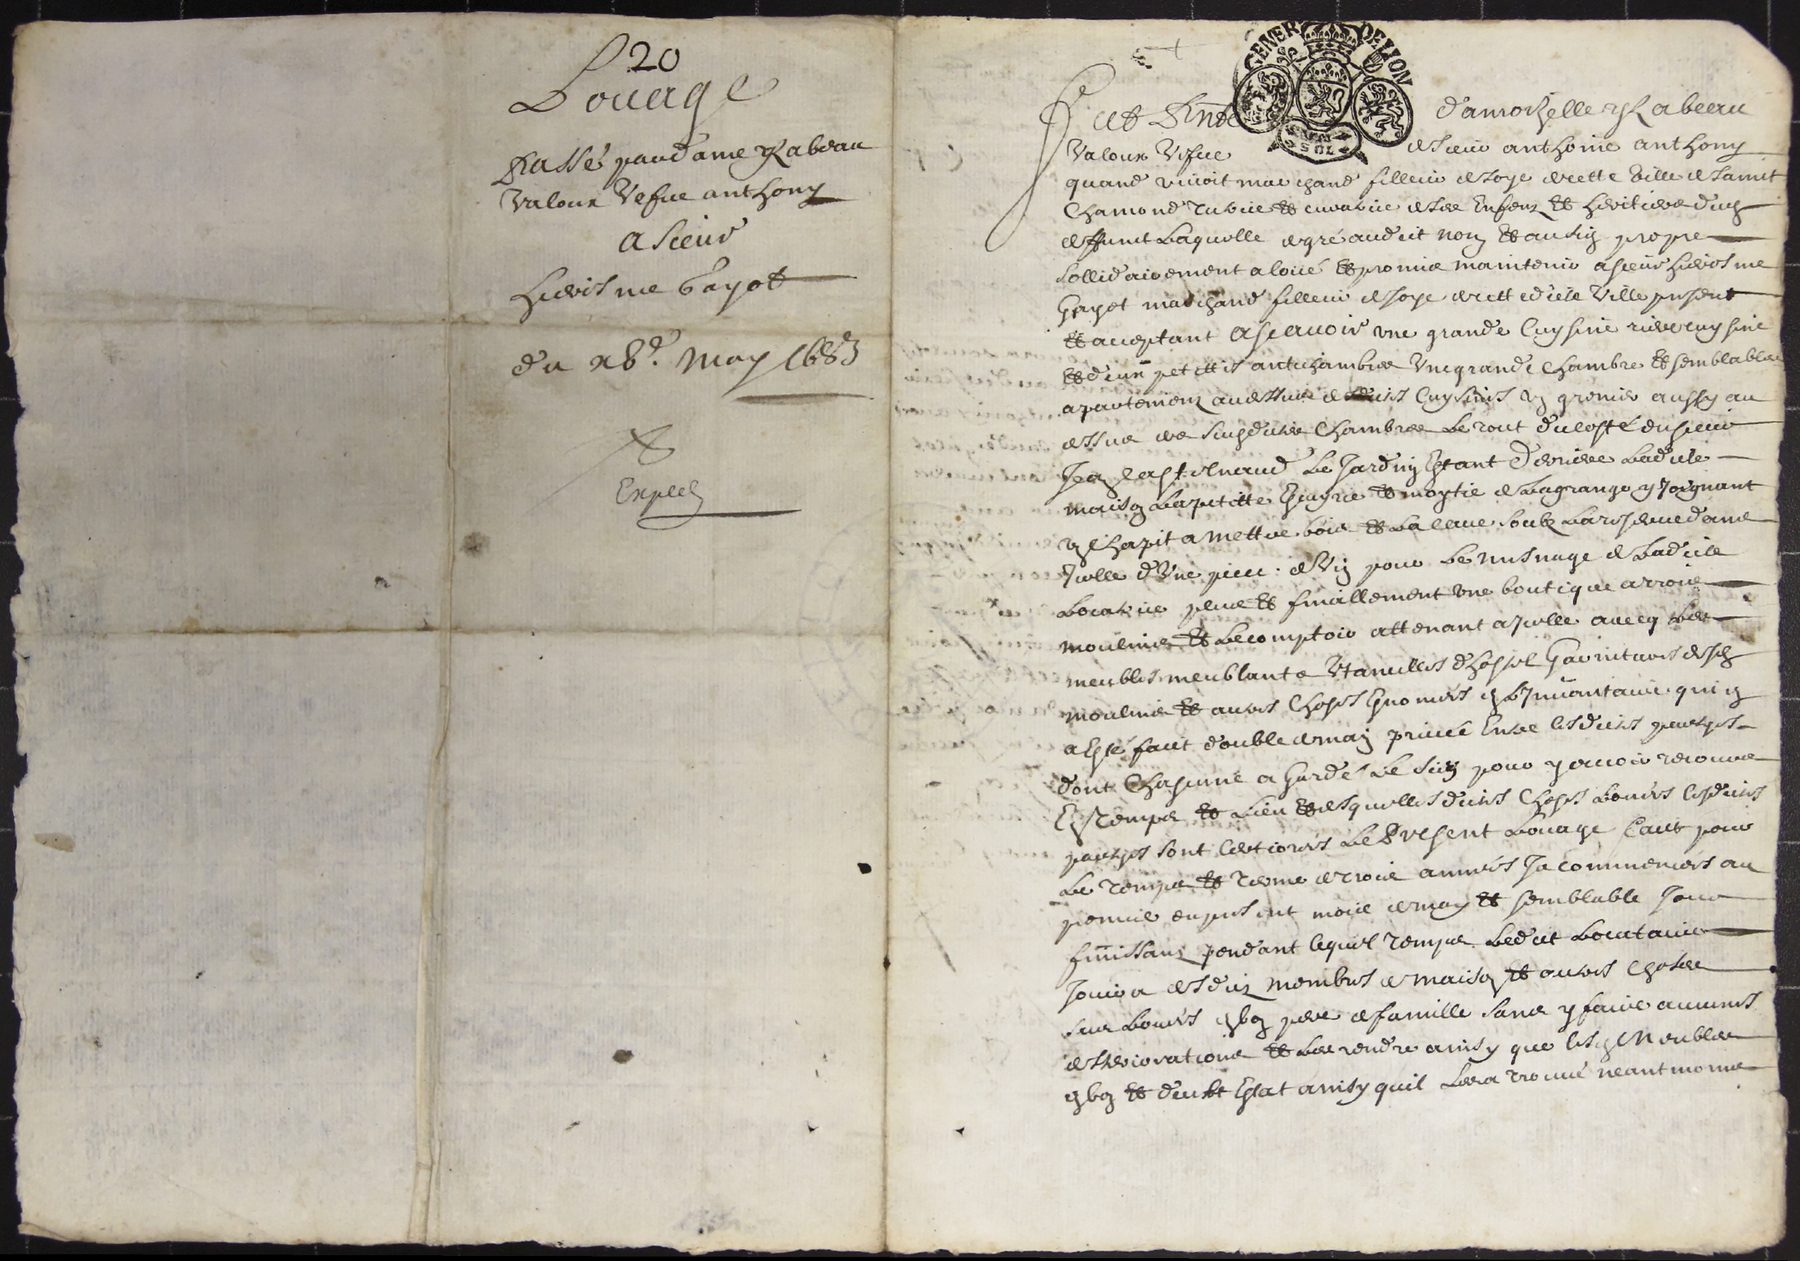 20
Louage
Passé par dame Yzabeau
Valoux Vefue anthony
a sieur
hierosme Gayot
du 28e. May 1683
Exped
GENER DE LION
Fut Pnte damoizelle yzabeau
Valoux Vefue de sieur anthoine anthony
quand vivoit marchand filleur de soye de cette Ville de saint
Chamond tutrice et curatrice de ses Enfens et heritiere dud
deffunt Laquelle de gré audit nom et au sien propre
sollidairement a loüé et promis maintenir a sieur hierosme
Gayot marchand filleur de soye de cette dicte Ville present
et acceptant ascavoir une grande Cuysine
et petittes antichambres Une grande Chambre et semblables
apartemens au dessus desdittes Cuysines un grenier aussy au
dessus de Chambres Le tout du costé du sieur
Le Jardin Estant derriere Ladicte
maison La petitte Escurie et moytie de La grange y Joignant
un Chapit a mettre bois et La cave soubz La reserve dans
Icelle d'Une piece de Vin pour Le mesnage de Ladicte
Locatrice plus et finallement une boutique a trois
moulins et Le comptoir attenant a Icelle avecq Les
meubles meublants Utancilles d'hostel Garnitures desd
moulins et autres Choses Enoncees en L'Inventaire quy en
a Esté fait double de main privée Entre lesdittes parties
dont Chascune a Gardé Le sien pour y avoir recours
En temps et Lieu et desquelles dittes Choses Louées lesdittes
parties sont Le Present Louage Faict pour
Le temps et terme de trois années Ja commencees au
premier du present mois de may et semblable Jour
finissans pendant lequel temps Ledit Locataire
Jouira desdits membres de maison et autres Choses
sus Louées en bon pere de famille sans y faire aucunes
desteriorations et Les rendre ainsy que lesd Meubles
en bon et deubt Estat ainsy quil Les a trouvé neantmoins